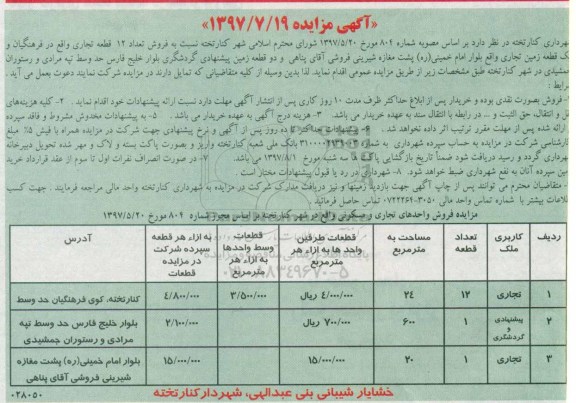 «آگهی مزایده ۱۳۹۷/۷/۱۹»
شهرداری کنارتخته در نظر دارد بر اساس مصوبه شماره ۸۰۴ مورخ ۱۳۹۷/۵/۲۰ شورای محترم اسلامی شهر کنارتخته نسبت به فروش تعداد ۱۲ قطعه تجاری واقع در فرهنگیان و
یک قطعه زمین تجاری واقع بلوار امام خمینی(ره) پشت مغازه شیرینی فروشی آقای پناهی و دو قطعه زمین پیشنهادی گردشگری بلوار خلیج فارس حد وسط تپه مرادی و رستوران
جمشیدی در شهر کنارتخته طبق مشخصات زیر از طریق مزایده عمومی اقدام نماید. لذا بدین وسیله از کلیه متقاضیانی که تمایل دارند در مزایده شرکت نمایند دعوت بعمل می آید.
شرایط :
۱- فروش بصورت نقدی بوده و خریدار پس از ابلاغ حداکثر ظرف مدت ۱۰ روز کاری پس از انتشار آگهی مهلت دارد نسبت ارائه پیشنهادات خود اقدام نماید. ۲- کلیه هزینه‌های
نقل و انتقال، حق الثبت و ... در رابطه با انتقال سند به عهده خریدار می باشد. ۳- هزینه درج آگهی به عهده خریدار می باشد. ۵- به پیشنهادات مخدوش مشروط و فاقد سپرده
ارائه شده پس از مهلت مقرر ترتیب اثر داده نخواهد شد. ۶- پیشنهادات حداکثر تا ده روز پس از آگهی و نرخ پیشنهادی جهت شرکت در مزایده همراه با فیش ۵٪ مبلغ
کارشناسی شرکت در مزایده به حساب سپرده شهرداری به شماره بانک ملی شعبه کنارتخته واریز و بصورت پاکت بسته و لاک و مهر شده تحویل دبیرخانه
شهرداری گردد و رسید دریافت شود ضمناً تاریخ بازگشایی پاکت ها سه شنبه مورخ ۱۳۹۷/۸/۱ می باشد. ۷- در صورت انصراف نفرات اول تا سوم از عقد قرارداد خرید
زمین سپرده آنان به نفع شهرداری ضبط خواهد شود. ۸- شهرداری در رد یا قبول پیشنهادات مختار است.
- متقاضیان محترم می توانند پس از چاپ آگهی جهت بازدید زمینها و نیز دریافت مدارک شرکت در مزایده به شهرداری کنارتخته واحد مالی مراجعه فرمایند. جهت کسب
اطلاعات بیشتر با شماره تماس واحد مالی ۳۰۵۰-۰۷۲۲۲۶۴ تماس حاصل فرمائید.
مزایده فروش واحدهای تجاری و مسکونی واقع در شهر کنارتخته بر اساس مجوز شماره ۸۰۴ مورخ ۱۳۹۷/۵/۲۰
ردیف | کاربری ملک | تعداد قطعه | مساحت به مترمربع | قطعات طرفین واحد ها به ازاء هر مترمربع | قطعات وسط واحدها به ازاء هر مترمربع | به ازاء هر قطعه سپرده شرکت در مزایده قطعات | آدرس
۱ | تجاری | ۱۲ | ۲۴ | ۴/۰۰۰/۰۰۰ ریال | ۳/۵۰۰/۰۰۰ | ۴/۸۰۰/۰۰۰ | کنارتخته، کوی فرهنگیان حد وسط
۲ | پیشنهادی و گردشگری | ۱ | ۶۰۰ | ۷۰۰/۰۰۰ ریال | ۲/۱۰۰/۰۰۰ | بلوار خلیج فارس حد وسط تپه مرادی و رستوران جمشیدی
۳ | تجاری | ۱ | ۲۰ | ۱۵/۰۰۰/۰۰۰ | ۱۵/۰۰۰/۰۰۰ | بلوار امام خمینی(ره) پشت مغازه شیرینی فروشی آقای پناهی
خشایار شیبانی بنی عبدالهی، شهردار کنارتخته
۰۲۸۰۵۰